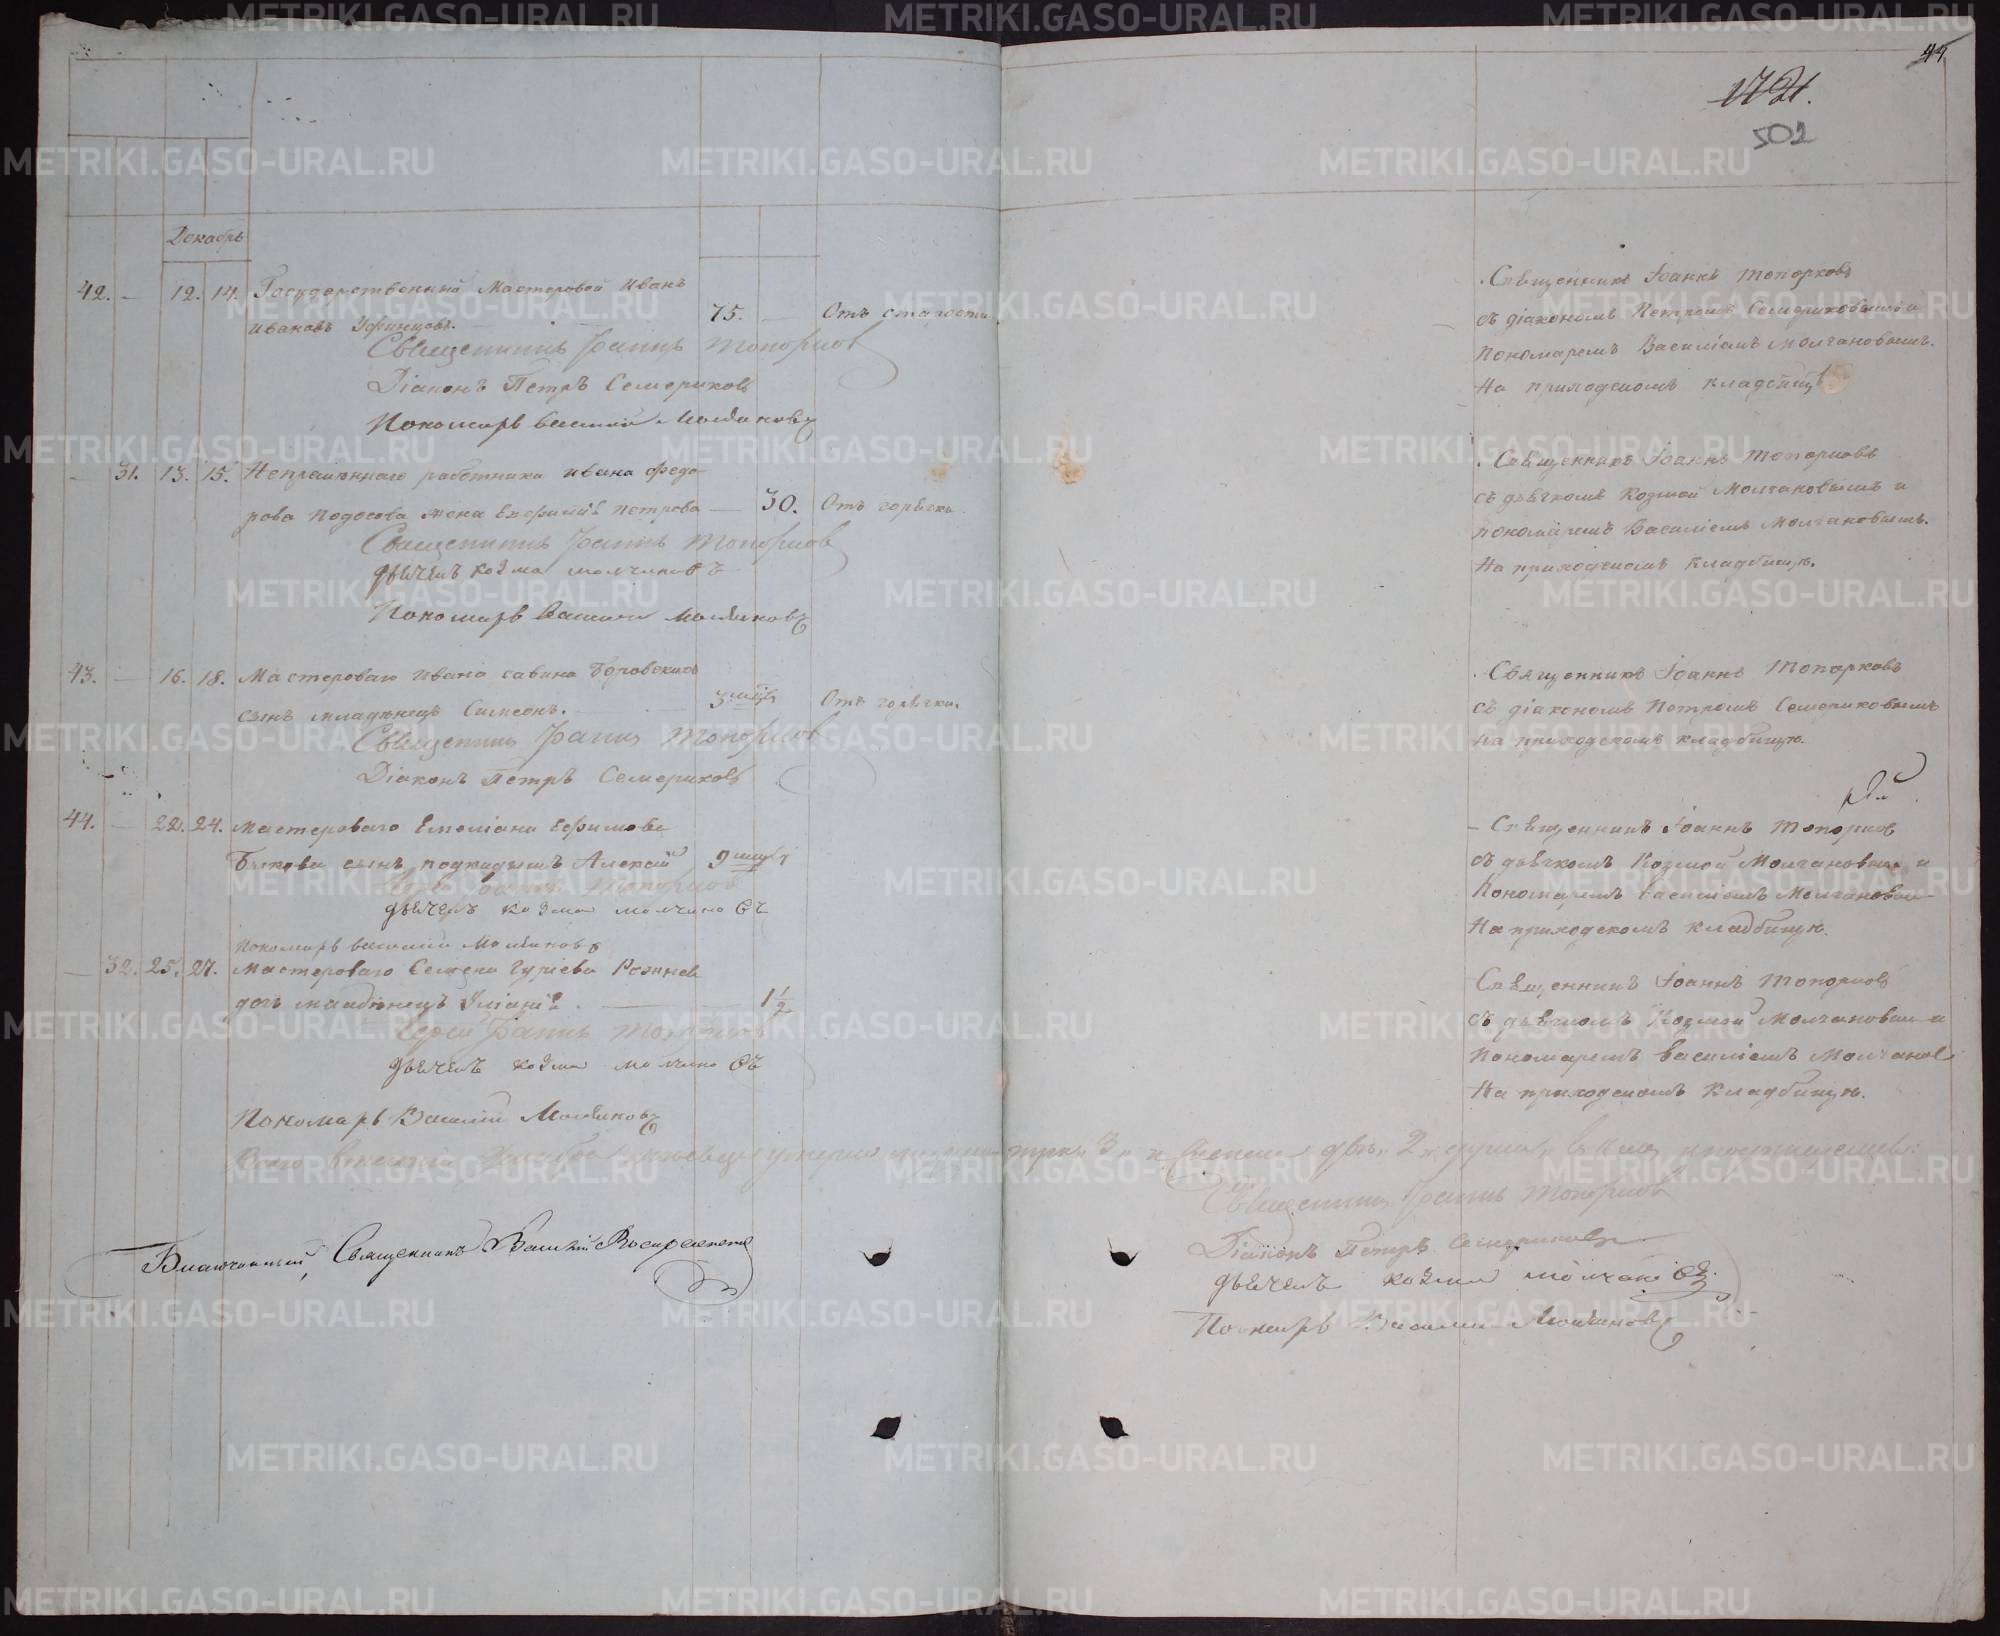 44
1721.
502
Декабрь
42. — 12. 14. Государственный Мастеровой Иванъ
Ивановъ Уфинцовъ. 75. — Отъ старости
Священникъ Іоаннъ Топорковъ
Діаконъ Петръ Семериковъ
Пономарь Василій Молчановъ
Священникъ Іоаннъ Топорковъ
съ діакономъ Петромъ Семериковымъ и
Пономаремъ Василіемъ Молчановымъ.
На приходскомъ кладбищѣ
— 31. 13. 15. Непремѣннаго работника Ивана Федо-
рова Подосова жена Евфимія Петрова — 30. Отъ горячки
Священникъ Іоаннъ Топорковъ
дьячекъ козма молчановъ
Пономарь Василій Молчановъ
Священникъ Іоаннъ Топорковъ
съ дьячкомъ Козмой Молчановымъ и
пономаремъ Василіемъ Молчановымъ.
На приходскомъ Кладбищѣ.
43. — 16. 18. Мастероваго Ивана Савина Боровскихъ
сынъ младенецъ Симеонъ. 3 мѣс Отъ горячки.
Священникъ Іоаннъ Топорковъ
Діаконъ Петръ Семериковъ
Священникъ Іоаннъ Топорковъ
съ діакономъ Петромъ Семериковымъ
На приходскомъ кладбищѣ.
44. — 22. 24. Мастероваго Емеліана Ефимова
Быкова сынъ подкидышъ Алексій 9 мѣс
Іоаннъ Топорковъ
дьячекъ козма молчановъ
Пономарь Василій Молчановъ
Священникъ Іоаннъ Топорковъ
съ дьячкомъ Козмой Молчановым и
Пономаремъ Василіемъ Молчановым
На приходскомъ кладбищѣ.
— 32. 25. 27. Мастероваго Семена Гуріева
дочь младенецъ Іуліанія. — 1 1/2
Іерей Іоаннъ Топорковъ
дьячекъ козма молчановъ
Пономарь Василій Молчановъ
Священникъ Іоаннъ Топорковъ
съ дьячкомъ Козмой Молчановым и
Пономаремъ Василіемъ Молчанов
На приходскомъ Кладбищѣ.
Всего въ Декабрѣ умерло три 3 и двѣ 2
Священникъ Іоаннъ Топорковъ
Діаконъ Петръ Семериковъ
дьячекъ козма молчановъ
Пономарь Василій Молчановъ
Благочинный, Священникъ Василій
METRIKI.GASO-URAL.RU